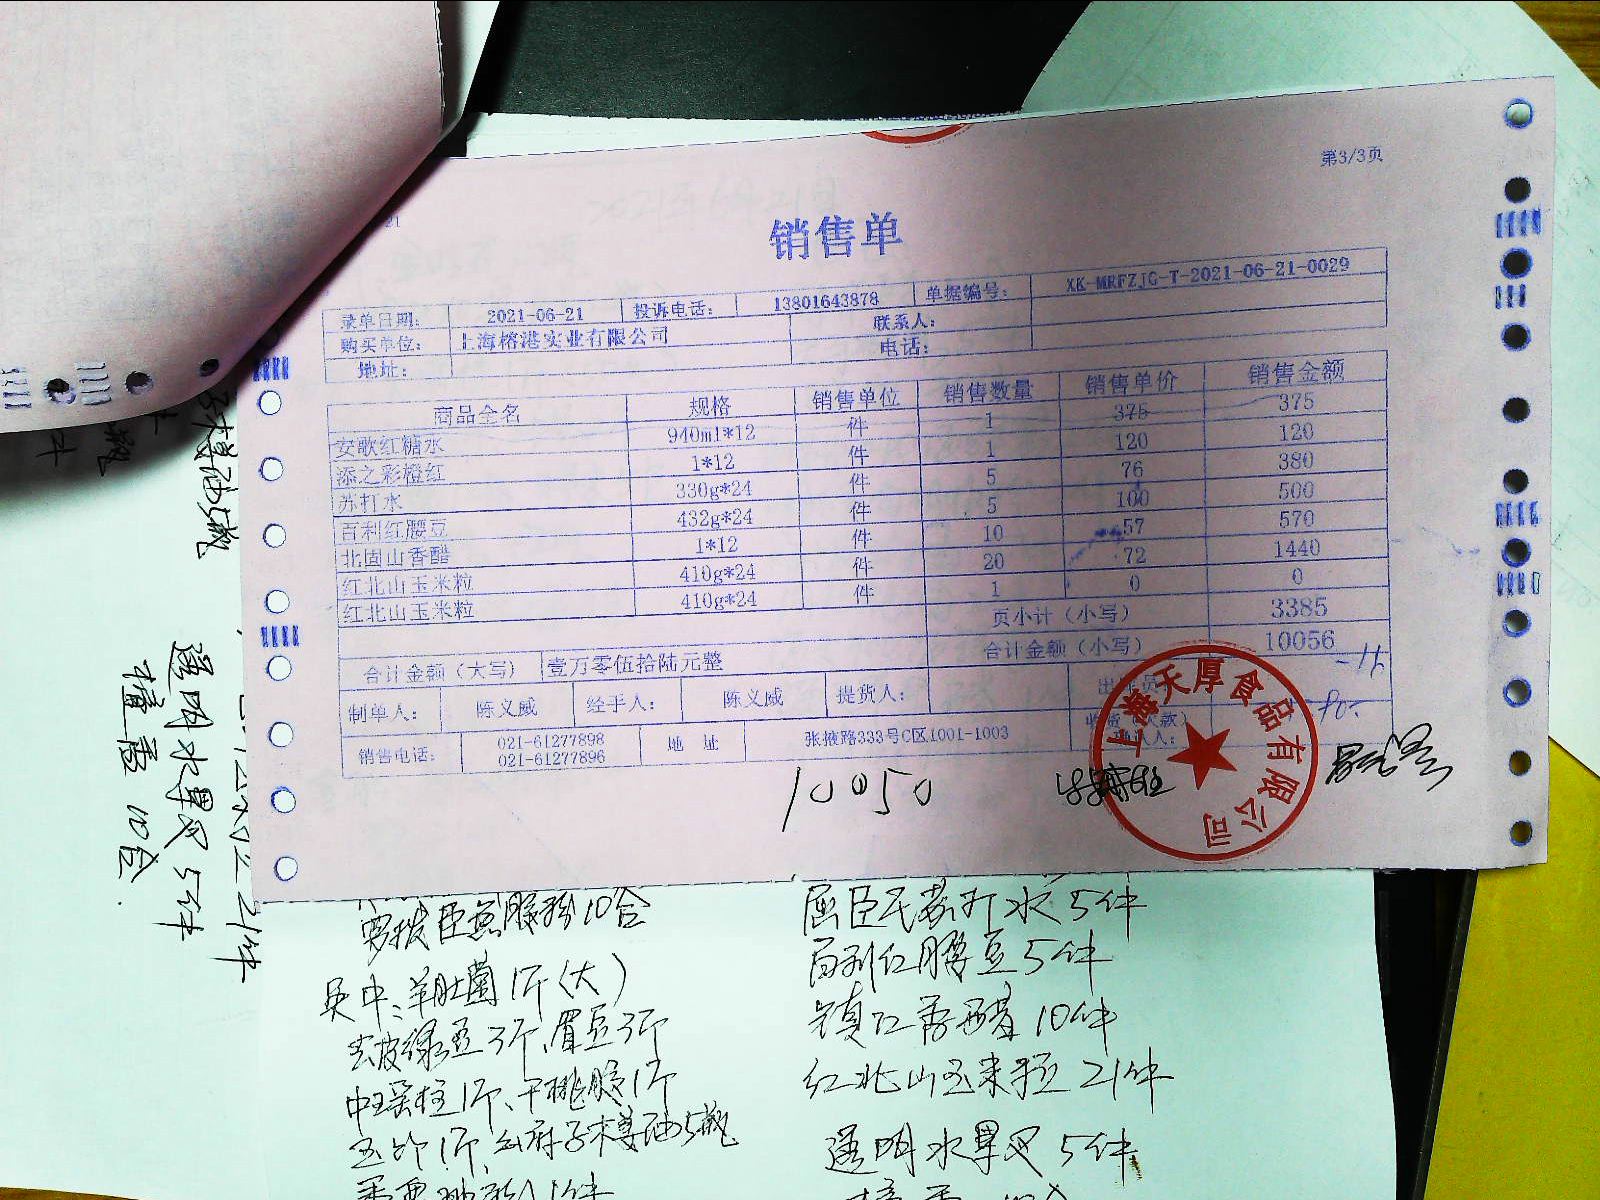 第3/3页
21
销售单
录单日期: 2021-06-21 投诉电话: 13801643878 单据编号: XK-MRFZJG-T-2021-06-21-0029
购买单位: 上海榕港实业有限公司 联系人:
地址: 电话:
商品全名 规格 销售单位 销售数量 销售单价 销售金额
安歌红糖水 940ml*12 件 1 375 375
添之彩橙红 1*12 件 1 120 120
苏打水 330g*24 件 5 76 380
百利红腰豆 432g*24 件 5 100 500
北固山香醋 1*12 件 10 57 570
红北山玉米粒 410g*24 件 20 72 1440
红北山玉米粒 410g*24 件 1 0 0
页小计（小写） 3385
合计金额（大写） 壹万零伍拾陆元整 合计金额（小写） 10056
制单人: 陈义威 经手人: 陈义威 提货人:
销售电话: 021-61277898 地 址 张掖路333号C区1001-1003
021-61277896
确认人:
上海天厚食品有限公司
10050
10合
屈臣氏苏打水5件
百利红腰豆5件
镇江香醋10件
红北山玉米粒21件
透明水果叉5件
羊肚菌1斤(大)
去皮绿豆3斤、眉豆3斤
1斤、干桃胶1斤
透明水果叉5件
10合
21件